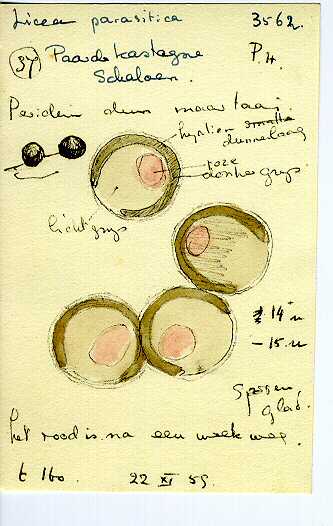 Licea parasitica 3562.
37 Paardekastagne P4.
Schaloen.
Peridien dun maar taai.
hyalien smalle
dunne laag
roze
donker grijs
lichtgrijs
14 u
- 15 u
Sporen
glad.
het rood is na een week weg.
t 160. 22 XI 59.